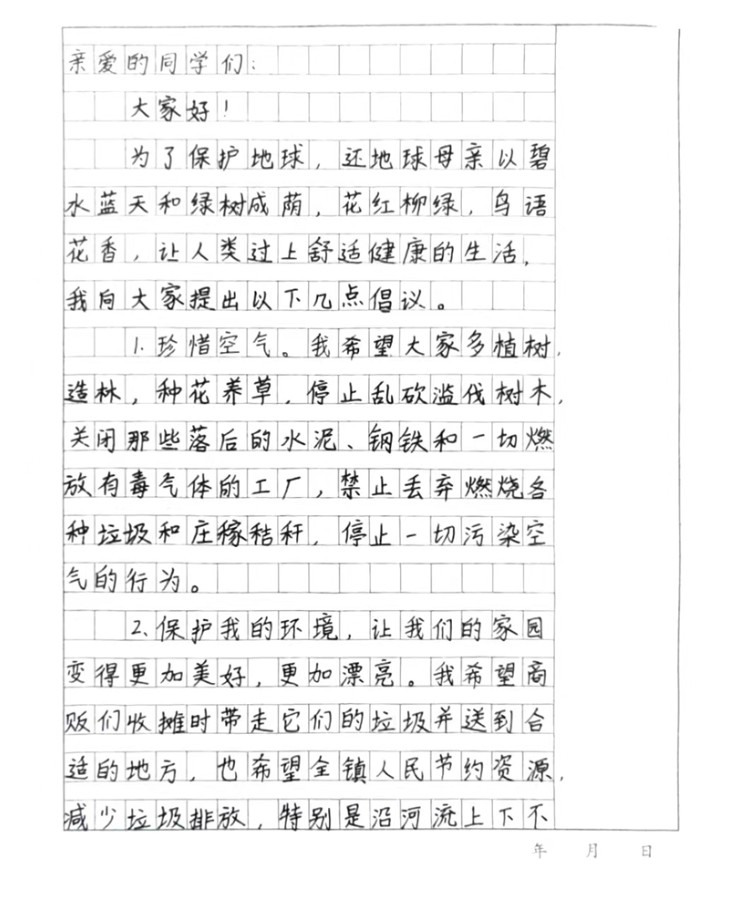 亲爱的同学们：
大家好！
为了保护地球，还地球母亲以碧
水蓝天和绿树成荫，花红柳绿，鸟语
花香，让人类过上舒适健康的生活，
我向大家提出以下几点倡议。
1.珍惜空气。我希望大家多植树，
造林，种花养草，停止乱砍滥伐树木，
关闭那些落后的水泥、钢铁和一切燃
放有毒气体的工厂，禁止丢弃燃烧各
种垃圾和庄稼秸秆，停止一切污染空
气的行为。
2.保护我的环境，让我们的家园
变得更加美好，更加漂亮。我希望商
贩们收摊时带走它们的垃圾并送到合
适的地方，也希望全镇人民节约资源，
减少垃圾排放，特别是沿河流上下不
年 月 日